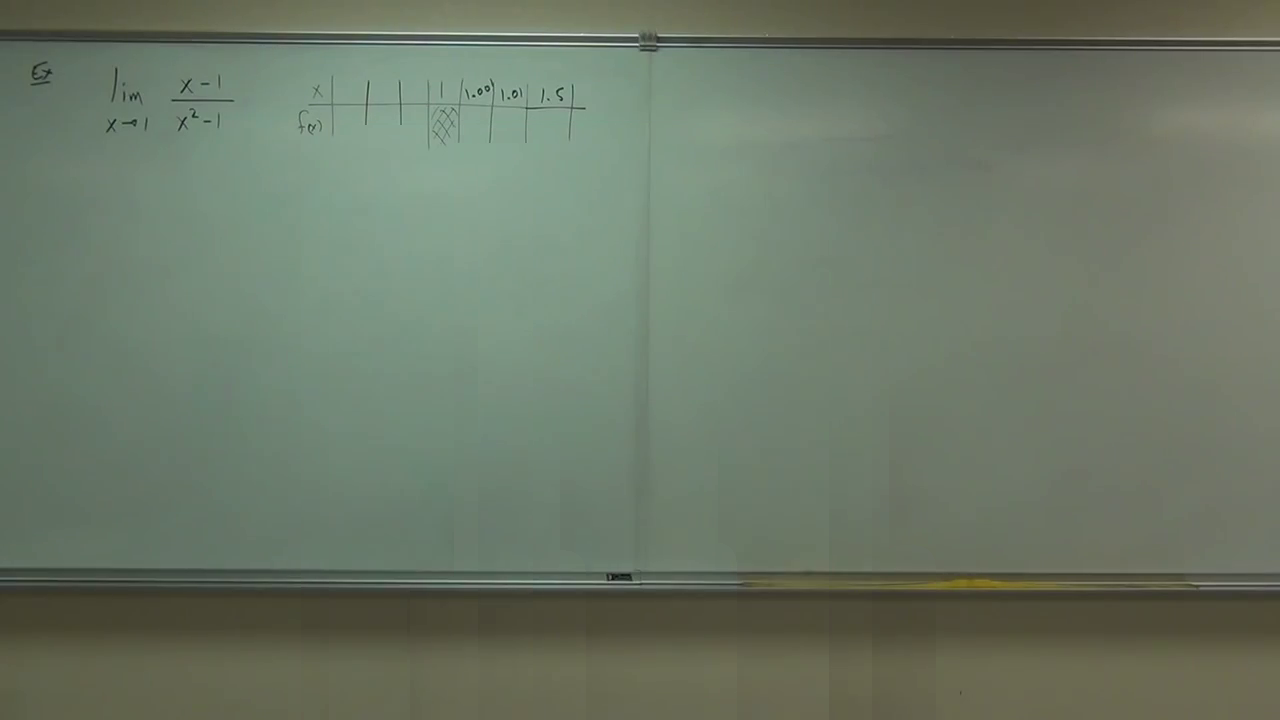 Ex lim x→1 x-1 / x²-1
x 1 1.001 1.01 1.5
f(x)